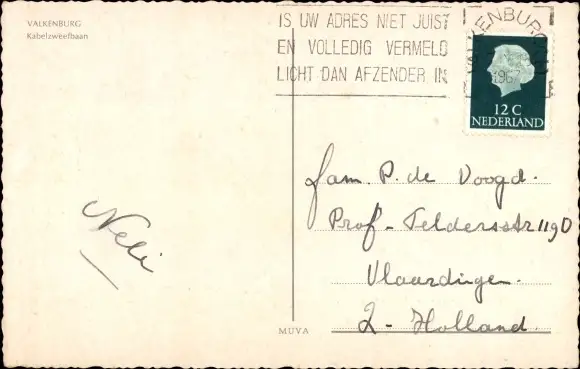 VALKENBURG
Kabelzweefbaan
IS UW ADRES NIET JUIST
EN VOLLEDIG VERMELD
LICHT DAN AFZENDER IN
VALKENBURG
1967
12 C
NEDERLAND
Fam. P. de Voogd.
Prof. Teldersstr 119D
Vlaardingen.
Z-Holland.
Neli
MUVA